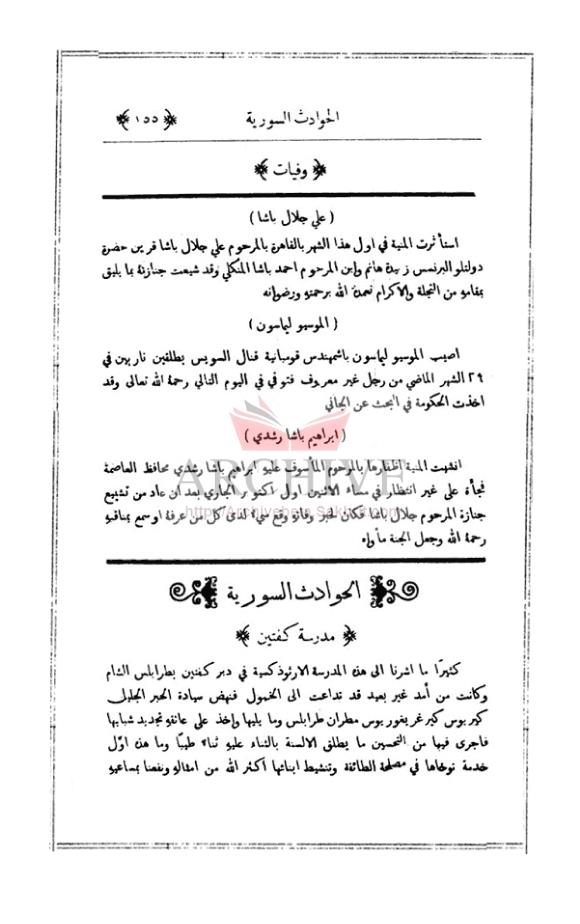 الحوادث السورية
﴿ ١٥٥ ﴾
﴿ وفيات ﴾
( علي جلال باشا )
استأثرت المنية في اول هذا الشهر بالقاهرة بالمرحوم علي جلال باشا قرين حضرة
دولتلو البرنسس زبيدة هانم وابن المرحوم احمد باشا المنكلي وقد شيعت جنازته بما يليق
بمقامهِ من التجلة والاكرام تغمدهُ الله برحمتهِ ورضوانه
( الموسيو ليماسون )
اصيب الموسيو ليماسون باشمهندس قومبانية قنال السويس بطلقين ناريين في
٢٩ الشهر الماضي من رجل غير معروف فتوفي في اليوم التالي رحمهُ الله تعالى وقد
اخذت الحكومة في البحث عن الجاني
( ابراهيم باشا رشدي )
ARCHIVE
http://Archivebeta.Sakhrit.com
انشبت المنية اظفارها بالمرحوم المأسوف عليهِ ابراهيم باشا رشدي محافظ العاصمة
فجأة على غير انتظار في مساء الاثنين اول اكتوبر الجاري بعد ان عاد من تشييع
جنازة المرحوم جلال باشا فكان لخبر وفاتهِ وقع سيء لدى كل من عرفهُ او سمع بمناقبهِ
رحمهُ الله وجعل الجنة مأواهُ
الحوادث السورية
﴿ مدرسة كفتين ﴾
كثيرًا ما اشرنا الى هذه المدرسة الارثوذكسية في دير كفتين بطرابلس الشام
وكانت من أمد غير بعيد قد تداعت الى الخمول فنهض سيادة الحبر الجليل
كيريوس كير غريغوريوس مطران طرابلس وما يليها وإخذ على عاتقهِ تجديد شبابها
فاجرى فيها من التحسين ما يطلق الالسنة بالثناء عليهِ ثناءً طيبًا وما هذه اوّل
خدمة توخاها في مصلحة الطائفة وتنشيط ابنائها أكثر الله من امثالهِ ونفعنا بمساعيهِ